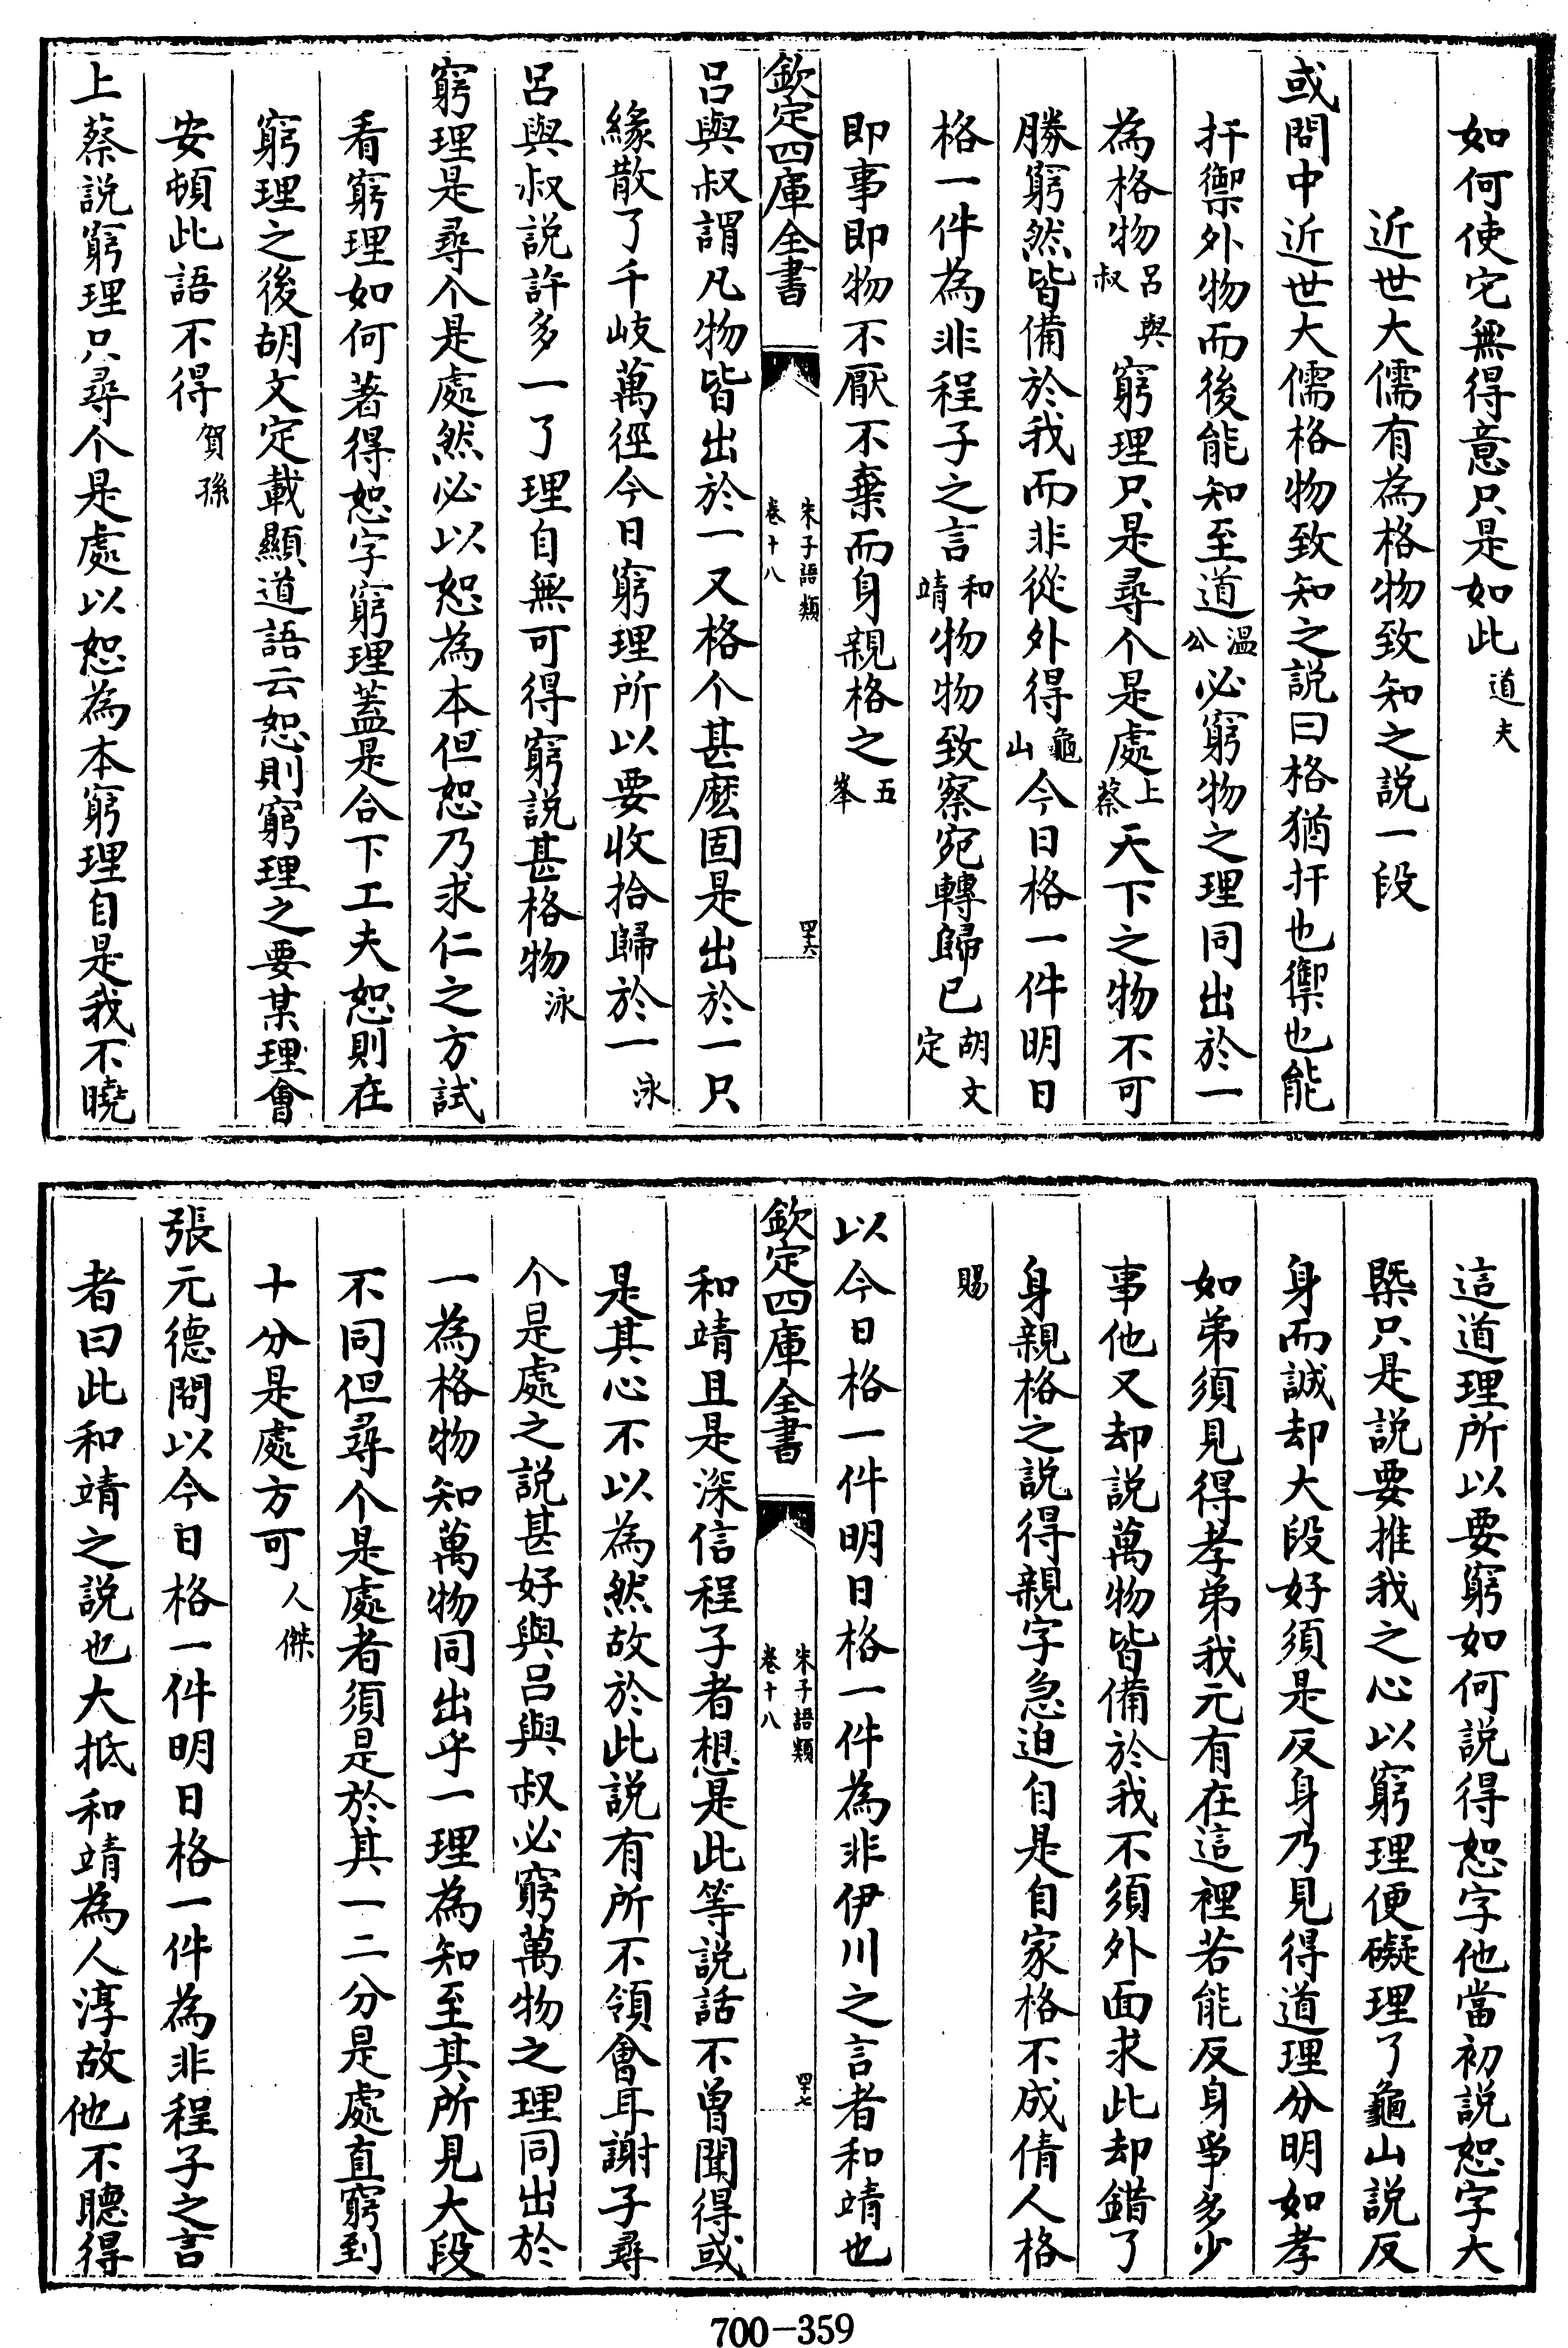 如何使它無得意只是如此道夫
近世大儒有為格物致知之説一段
或問中近世大儒格物致知之説曰格猶扞也禦也能
扞禦外物而後能知至道溫公必窮物之理同出於一
為格物呂與叔窮理只是尋个是處上蔡天下之物不可
勝窮然皆備於我而非從外得龜山今日格一件明日
格一件為非程子之言和靖物物致察宛轉歸已胡文定
即事即物不厭不棄而身親格之五峯
欽定四庫全書
朱子語類
卷十八
四十六
呂與叔謂凡物皆出於一又格个甚麽固是出於一只
緣散了千岐萬徑今日窮理所以要收拾歸於一泳
呂與叔説許多一了理自無可得窮説甚格物泳
窮理是尋个是處然必以恕為本但恕乃求仁之方試
看窮理如何著得恕字窮理蓋是合下工夫恕則在
窮理之後胡文定載顯道語云恕則窮理之要某理會
安頓此語不得賀孫
上蔡説窮理只尋个是處以恕為本窮理自是我不曉
這道理所以要窮如何説得恕字他當初説恕字大
槩只是説要推我之心以窮理便礙理了龜山説反
身而誠却大段好須是反身乃見得道理分明如孝
如弟須見得孝弟我元有在這裡若能反身爭多少
事他又却説萬物皆備於我不須外面求此却錯了
身親格之説得親字急迫自是自家格不成倩人格
賜
以今日格一件明日格一件為非伊川之言者和靖也
欽定四庫全書
朱子語類
卷十八
四十七
和靖且是深信程子者想是此等説話不曾聞得或
是其心不以為然故於此説有所不領會耳謝子尋
个是處之説甚好與呂與叔必窮萬物之理同出於
一為格物知萬物同出乎一理為知至其所見大段
不同但尋个是處者須是於其一二分是處直窮到
十分是處方可人傑
張元德問以今日格一件明日格一件為非程子之言
者曰此和靖之説也大抵和靖為人淳故他不聽得
700-359